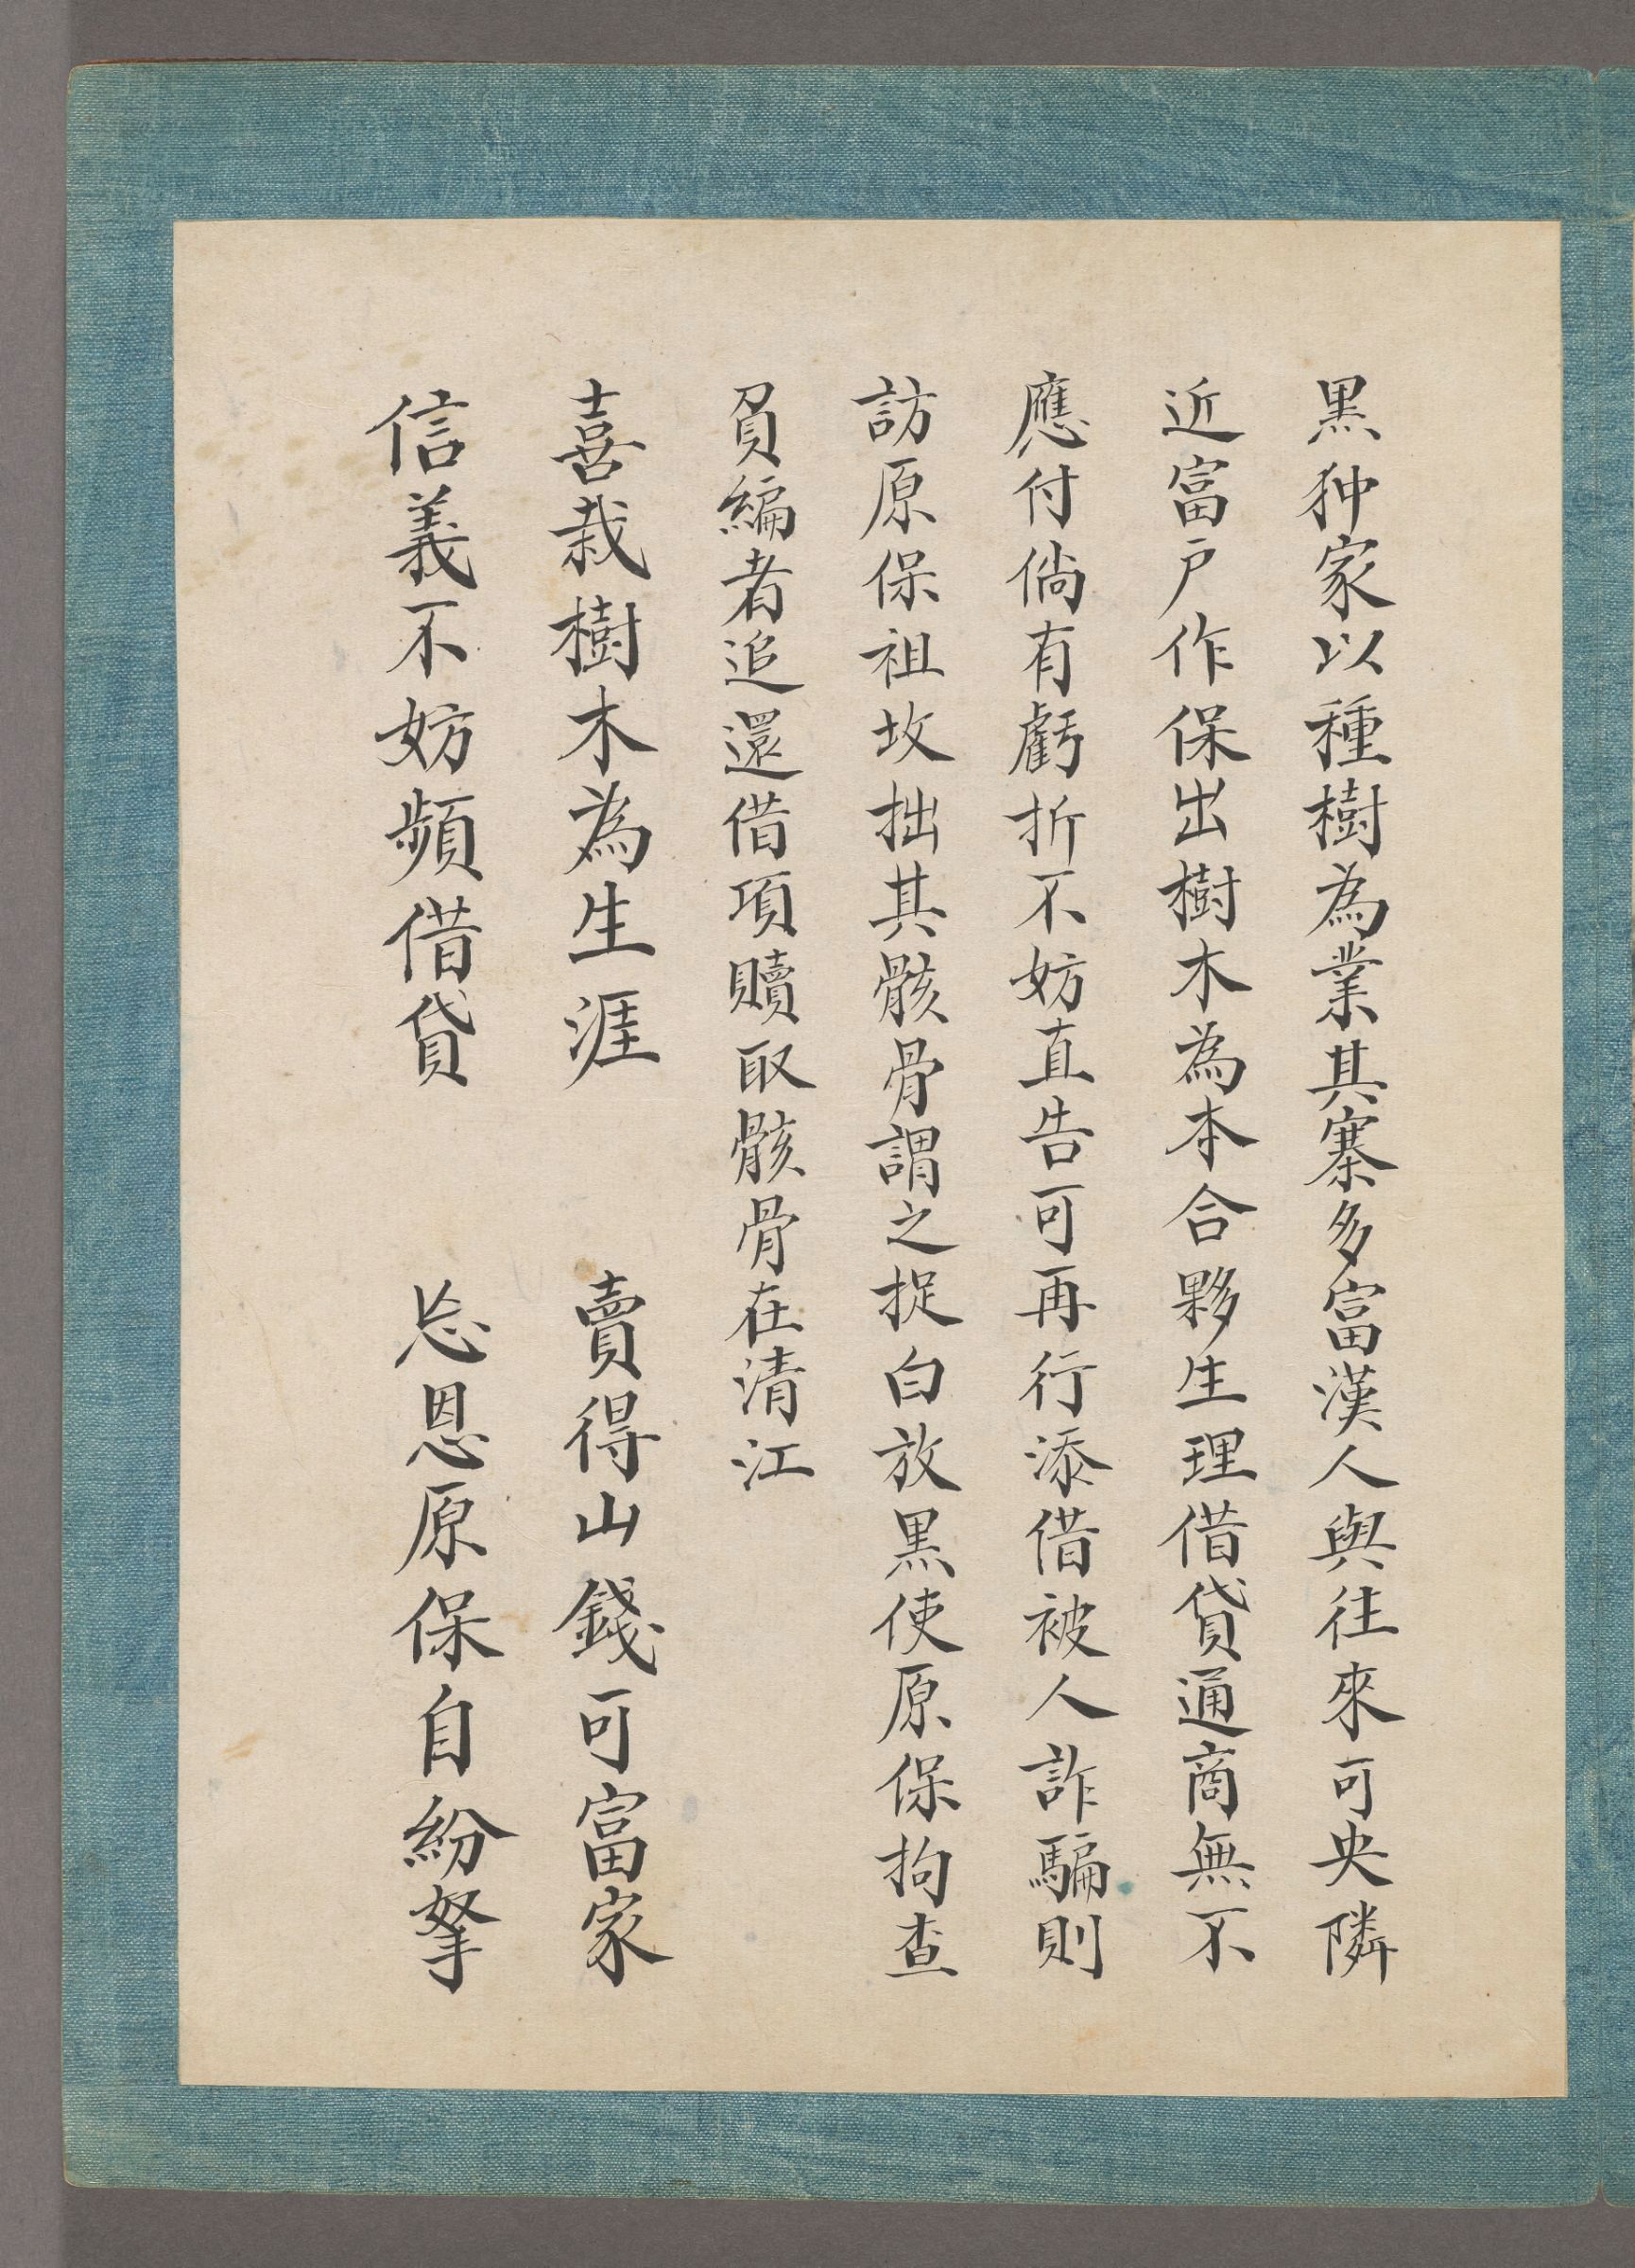 黑狆家以種樹為業其寨多富漢人與往來可央隣
近富戶作保出樹木為本合夥生理借貸通商無不
應付倘有虧折不妨直告可再行添借被人詐騙則
訪原保祖坟拙其骸骨謂之捉白放黑使原保拘查
負騙者追還借項贖取骸骨在清江
喜栽樹木為生涯　賣得山錢可富家
信義不妨頻借貸　忘恩原保自紛拏